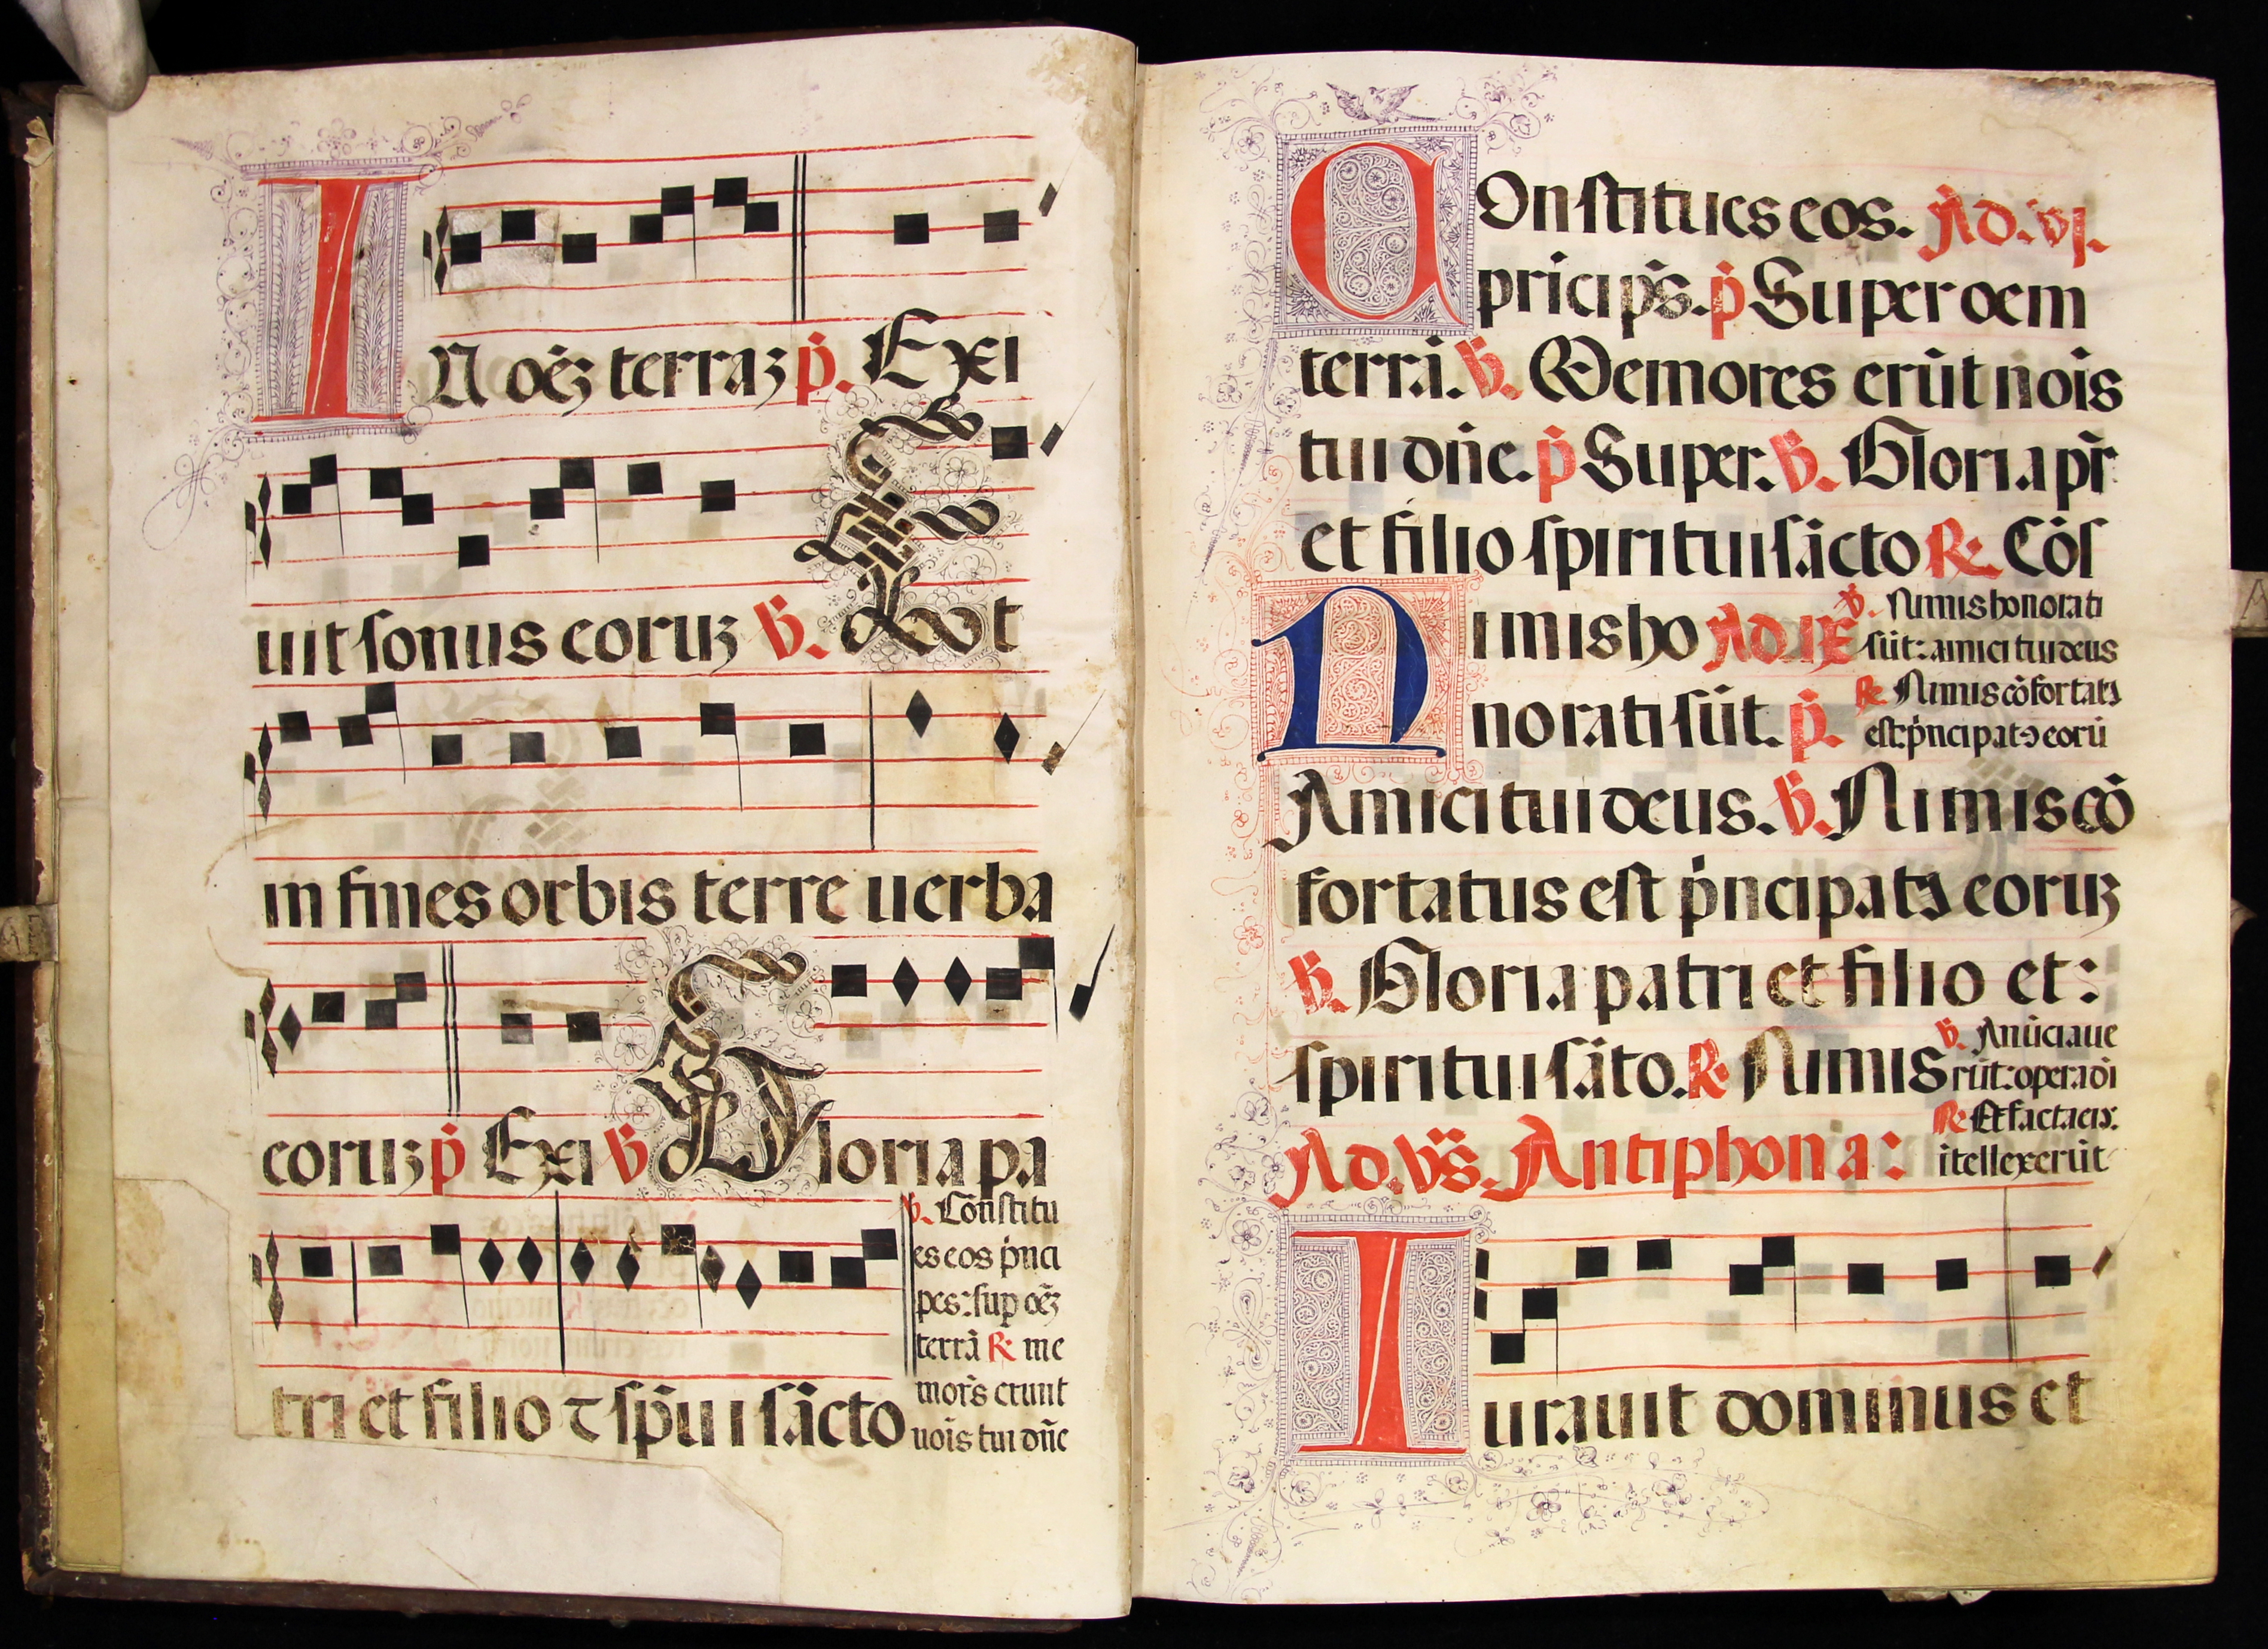 IN oēz terraz p̄. Exi
uit sonus eoruz ℣. Et
in fines orbis terre uerba
eoruz p̄ Exi ℣ Gloria pa
tri et filio ⁊ sp̄ui sācto
℣. Constitu
es eos p̄nci
pes: sup oēz
terrā ℟ me
mor̄s erunt
nōis tui dn̄e
COnstitues eos. Ad. vj.
pricip̄s. p̄ Super oem
terrā. ℣. Memores erūt nōis
tui dn̄e. p̄ Super. ℣. Gloria pr̄
et filio spiritui sācto ℟. Cōs
NImis ho Ad IX
norati sūt. p̄.
℣. Nimis honorati
sūt: amici tui deus
℟ Nimis cōfortatꝰ
est p̄ncipatꝰ eorū
Amici tui deus. ℣. Nimis cō
fortatus est p̄ncipatꝰ eoruz
℣. Gloria patri et filio et:
spiritui sāto. ℟ Nimis
℣. Anūciaue
rūt: opera dī
℟ Et facta eiꝰ.
itellexerūt
Ad. Vs̄. Antiphona:
Iurauit dominus et